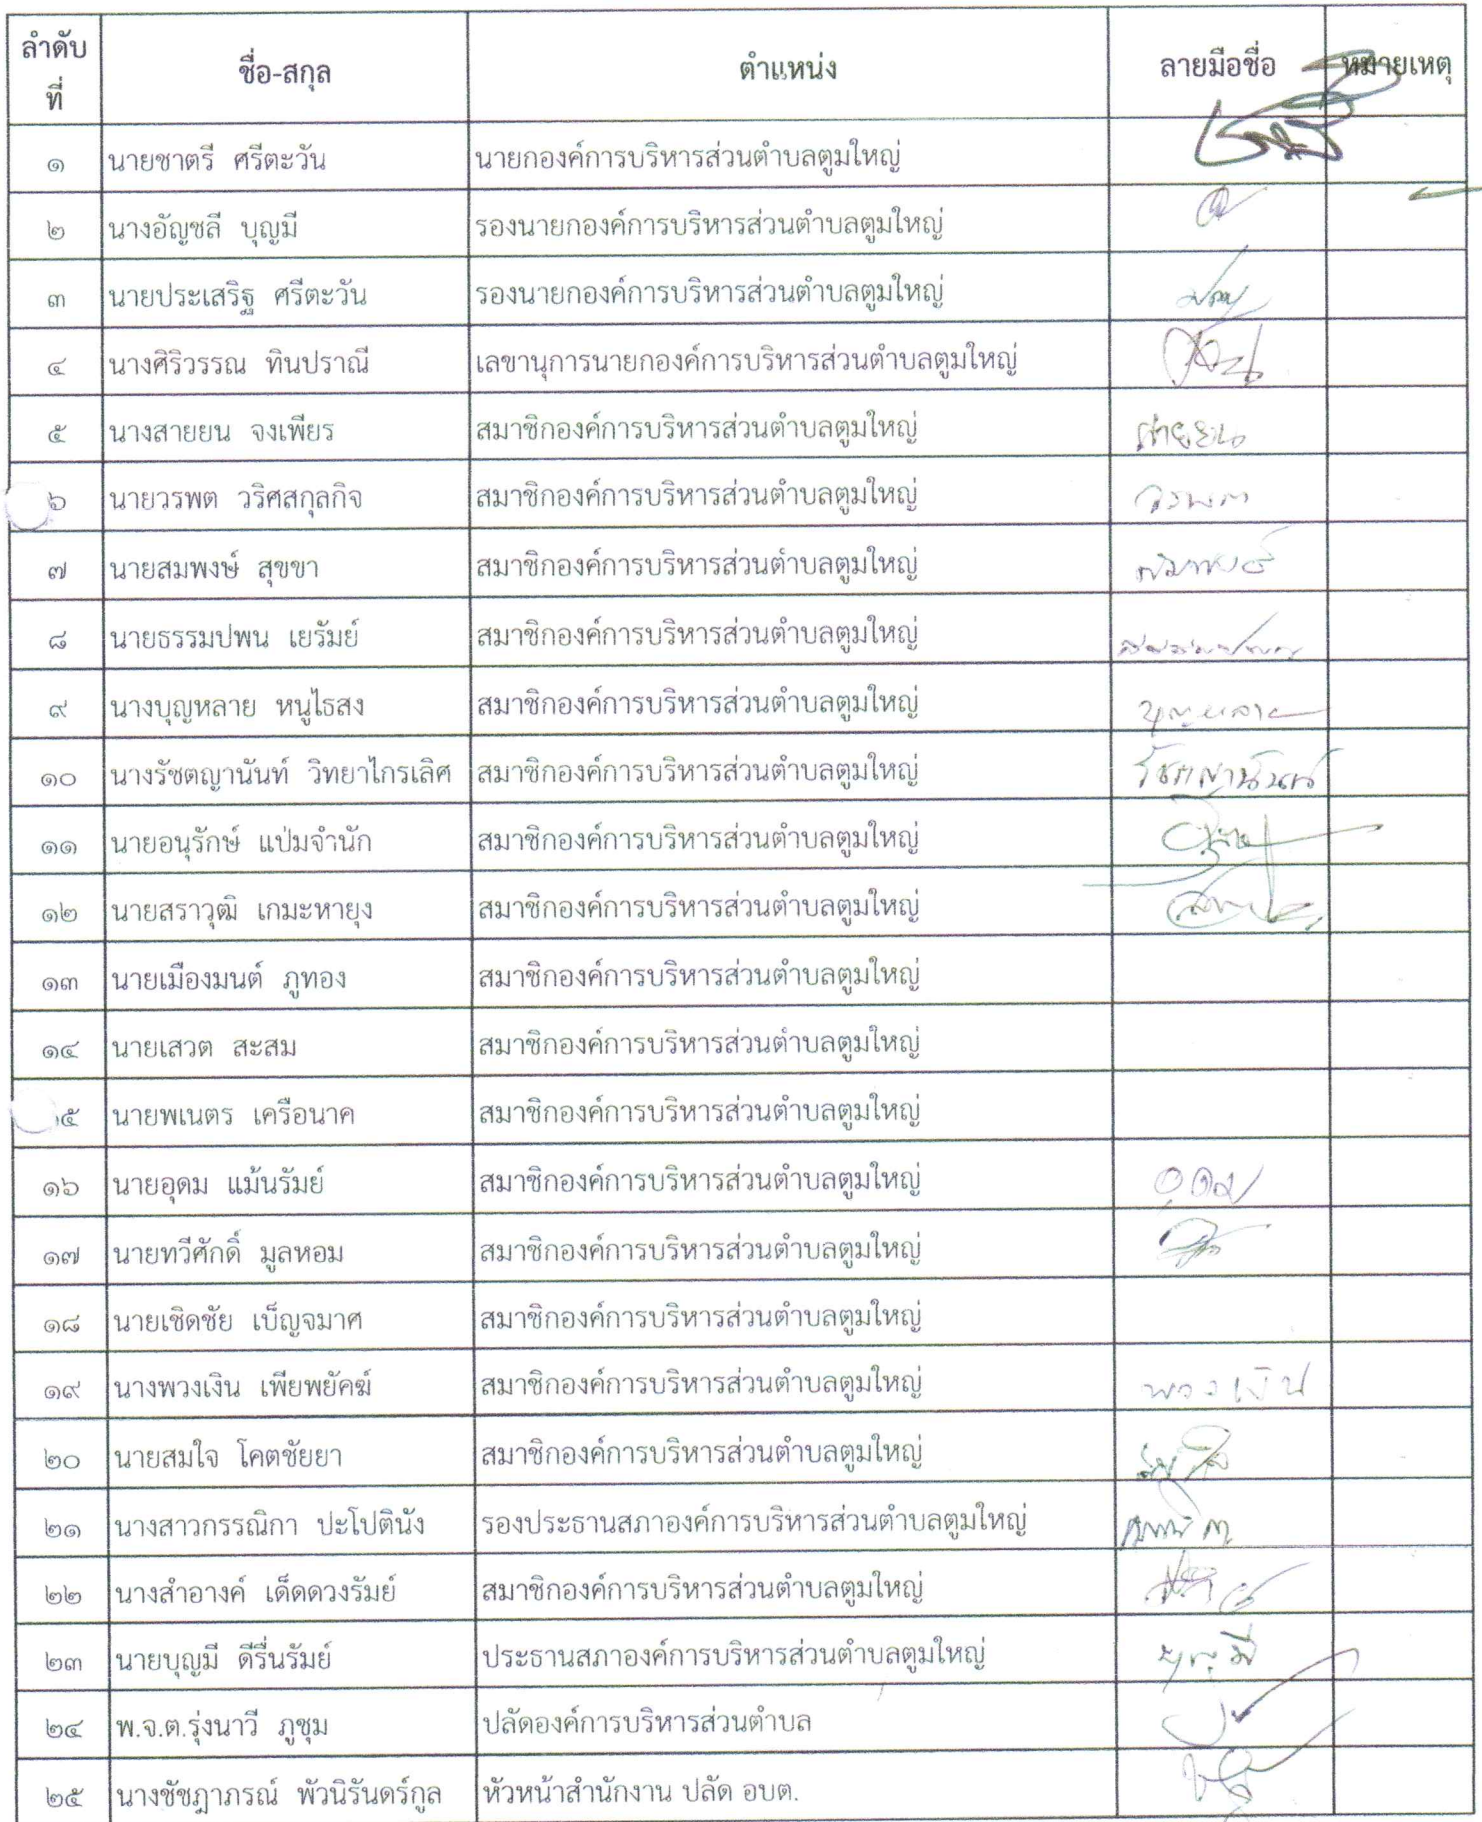 ลำดับที่ ชื่อ-สกุล ตำแหน่ง ลายมือชื่อ หมายเหตุ
๑ นายชาตรี ศรีตะวัน นายกองค์การบริหารส่วนตำบลตูมใหญ่
๒ นางอัญชลี บุญมี รองนายกองค์การบริหารส่วนตำบลตูมใหญ่
๓ นายประเสริฐ ศรีตะวัน รองนายกองค์การบริหารส่วนตำบลตูมใหญ่
๔ นางศิริวรรณ ทินปราณี เลขานุการนายกองค์การบริหารส่วนตำบลตูมใหญ่
๕ นางสายยน จงเพียร สมาชิกองค์การบริหารส่วนตำบลตูมใหญ่ สายยน
๖ นายวรพต วริศสกุลกิจ สมาชิกองค์การบริหารส่วนตำบลตูมใหญ่ วรพต
๗ นายสมพงษ์ สุขขา สมาชิกองค์การบริหารส่วนตำบลตูมใหญ่ สมพงษ์
๘ นายธรรมปพน เยรัมย์ สมาชิกองค์การบริหารส่วนตำบลตูมใหญ่
๙ นางบุญหลาย หนูไธสง สมาชิกองค์การบริหารส่วนตำบลตูมใหญ่ บุญหลาย
๑๐ นางรัชตญานันท์ วิทยาไกรเลิศ สมาชิกองค์การบริหารส่วนตำบลตูมใหญ่ รัชตญานันท์
๑๑ นายอนุรักษ์ แป่มจำนัก สมาชิกองค์การบริหารส่วนตำบลตูมใหญ่
๑๒ นายสราวุฒิ เกมะหายุง สมาชิกองค์การบริหารส่วนตำบลตูมใหญ่
๑๓ นายเมืองมนต์ ภูทอง สมาชิกองค์การบริหารส่วนตำบลตูมใหญ่
๑๔ นายเสวต สะสม สมาชิกองค์การบริหารส่วนตำบลตูมใหญ่
๑๕ นายพเนตร เครือนาค สมาชิกองค์การบริหารส่วนตำบลตูมใหญ่
๑๖ นายอุดม แม้นรัมย์ สมาชิกองค์การบริหารส่วนตำบลตูมใหญ่ อุดม
๑๗ นายทวีศักดิ์ มูลหอม สมาชิกองค์การบริหารส่วนตำบลตูมใหญ่
๑๘ นายเชิดชัย เบ็ญจมาศ สมาชิกองค์การบริหารส่วนตำบลตูมใหญ่
๑๙ นางพวงเงิน เพียพยัคฆ์ สมาชิกองค์การบริหารส่วนตำบลตูมใหญ่ พวงเงิน
๒๐ นายสมใจ โคตชัยยา สมาชิกองค์การบริหารส่วนตำบลตูมใหญ่
๒๑ นางสาวกรรณิกา ปะโปตินัง รองประธานสภาองค์การบริหารส่วนตำบลตูมใหญ่
๒๒ นางสำอางค์ เด็ดดวงรัมย์ สมาชิกองค์การบริหารส่วนตำบลตูมใหญ่
๒๓ นายบุญมี ดีรื่นรัมย์ ประธานสภาองค์การบริหารส่วนตำบลตูมใหญ่ บุญมี
๒๔ พ.จ.ต.รุ่งนาวี ภูชุม ปลัดองค์การบริหารส่วนตำบล
๒๕ นางชัชฎาภรณ์ พัวนิรันดร์กูล หัวหน้าสำนักงาน ปลัด อบต.